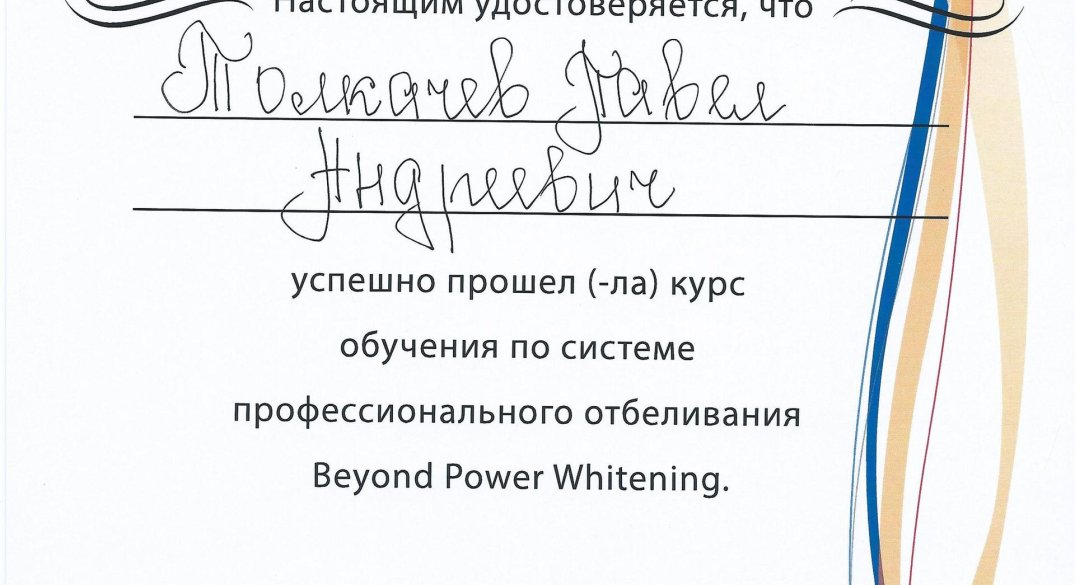 Настоящим удостоверяется, что
Толкачев Павел
Андреевич
успешно прошел (-ла) курс
обучения по системе
профессионального отбеливания
Beyond Power Whitening.